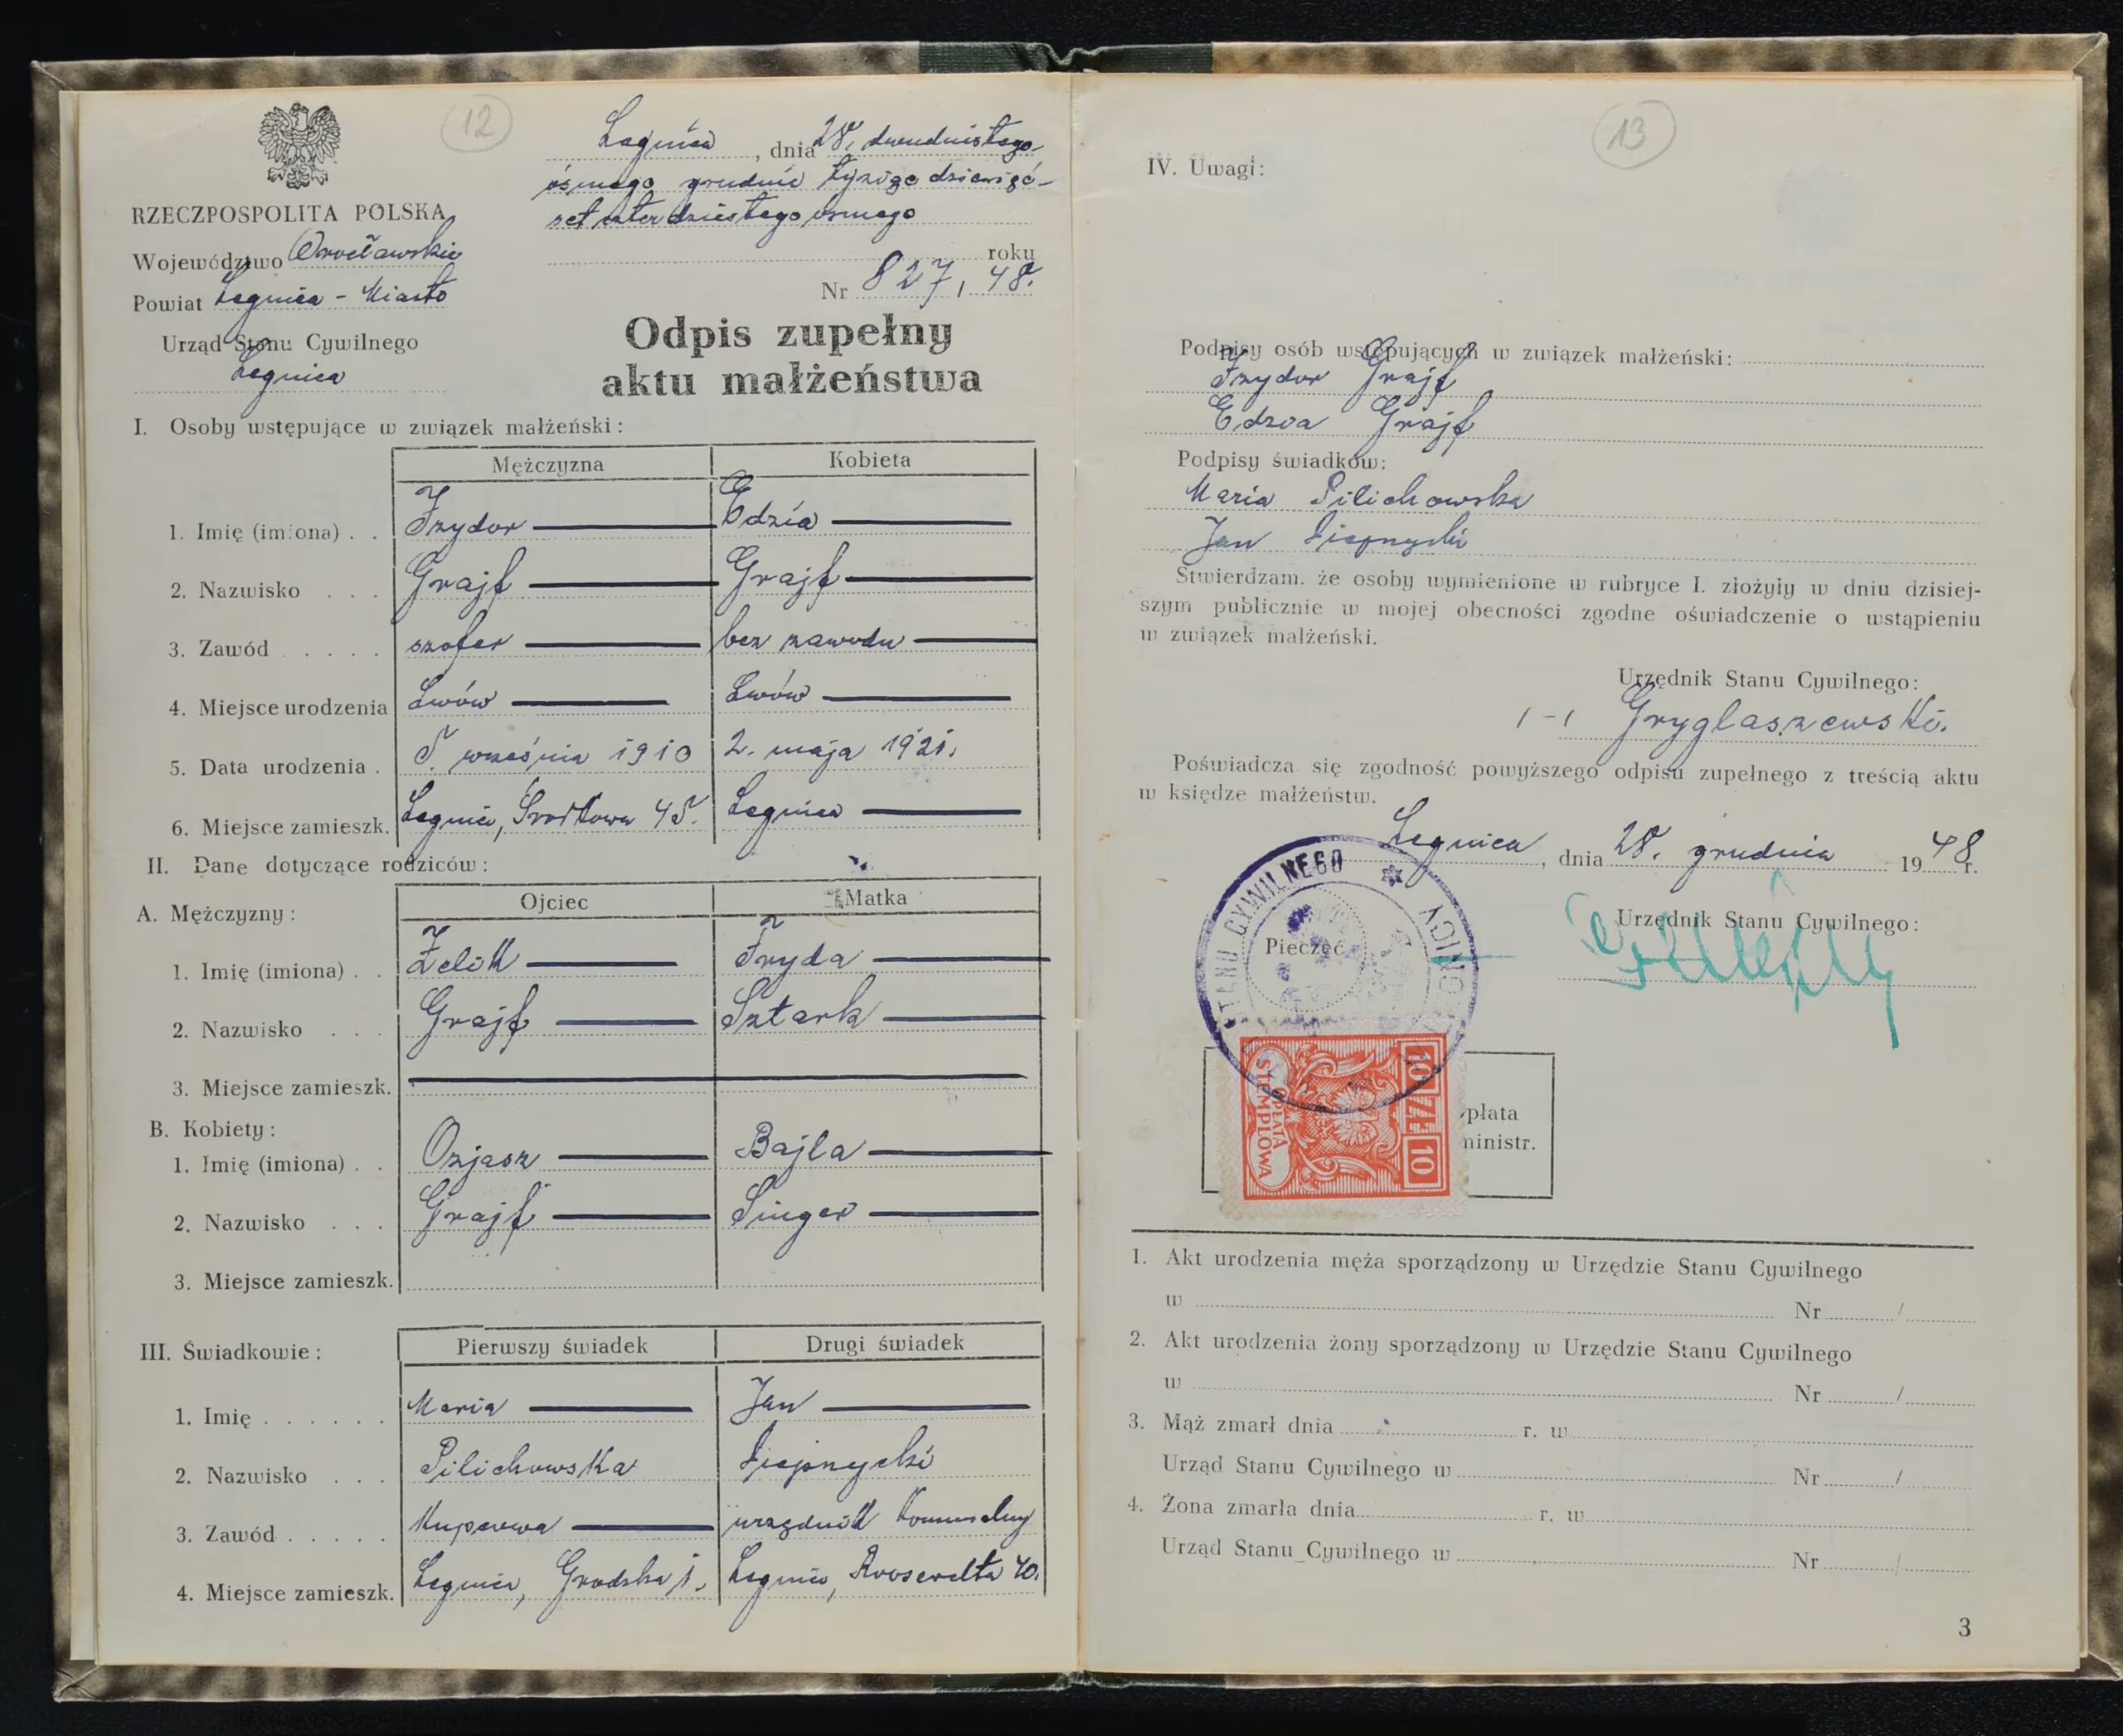 12
Legnica, dnia 28. dwudziestego
ósmego grudnia tysiąc dziewięć-
set czterdziestego ósmego
roku
Nr 827/48.
RZECZPOSPOLITA POLSKA
Województwo Wrocławskie
Powiat Legnica - Miasto
Urząd Stanu Cywilnego
Legnica
Odpis zupełny
aktu małżeństwa
I. Osoby wstępujące w związek małżeński:
Mężczyzna Kobieta
1. Imię (imiona) . . Izydor Edzia
2. Nazwisko . . . Grajf Grajf
3. Zawód . . . . . szofer bez zawodu
4. Miejsce urodzenia Lwów Lwów
5. Data urodzenia . września 1910 2. maja 1921.
6. Miejsce zamieszk. Legnica, Środkowa Legnica
II. Dane dotyczące rodziców:
Ojciec Matka
A. Mężczyzny:
1. Imię (imiona) . . Zelik Fryda
2. Nazwisko . . . Grajf Sztark
3. Miejsce zamieszk.
B. Kobiety:
1. Imię (imiona) . . Ozjasz Bajla
2. Nazwisko . . . Grajf Singer
3. Miejsce zamieszk.
III. Świadkowie:
Pierwszy świadek Drugi świadek
1. Imię . . . . . . Maria Jan
2. Nazwisko . . . Pilichowska
3. Zawód . . . . . Kupcowa urzędnik komunalny
4. Miejsce zamieszk. Legnica, Grodzka 1. Legnica, Roosevelta 40.
13
IV. Uwagi:
Podpisy osób wstępujących w związek małżeński:
Izydor Grajf
Edzia Grajf
Podpisy świadków:
Maria Pilichowska
Jan
Stwierdzam, że osoby wymienione w rubryce I. złożyły w dniu dzisiej-
szym publicznie w mojej obecności zgodne oświadczenie o wstąpieniu
w związek małżeński.
Urzędnik Stanu Cywilnego:
/-/ Gryglaszewski.
Poświadcza się zgodność powyższego odpisu zupełnego z treścią aktu
w księdze małżeństw.
Legnica, dnia 28. grudnia 1948 r.
Urzędnik Stanu Cywilnego:
Pieczęć
STANU CYWILNEGO
10 ZŁ 10
OPŁATA
STEMPLOWA
płata
ministr.
1. Akt urodzenia męża sporządzony w Urzędzie Stanu Cywilnego
w Nr /
2. Akt urodzenia żony sporządzony w Urzędzie Stanu Cywilnego
w Nr /
3. Mąż zmarł dnia r. w
Urząd Stanu Cywilnego w Nr /
4. Żona zmarła dnia r. w
Urząd Stanu Cywilnego w Nr /
3